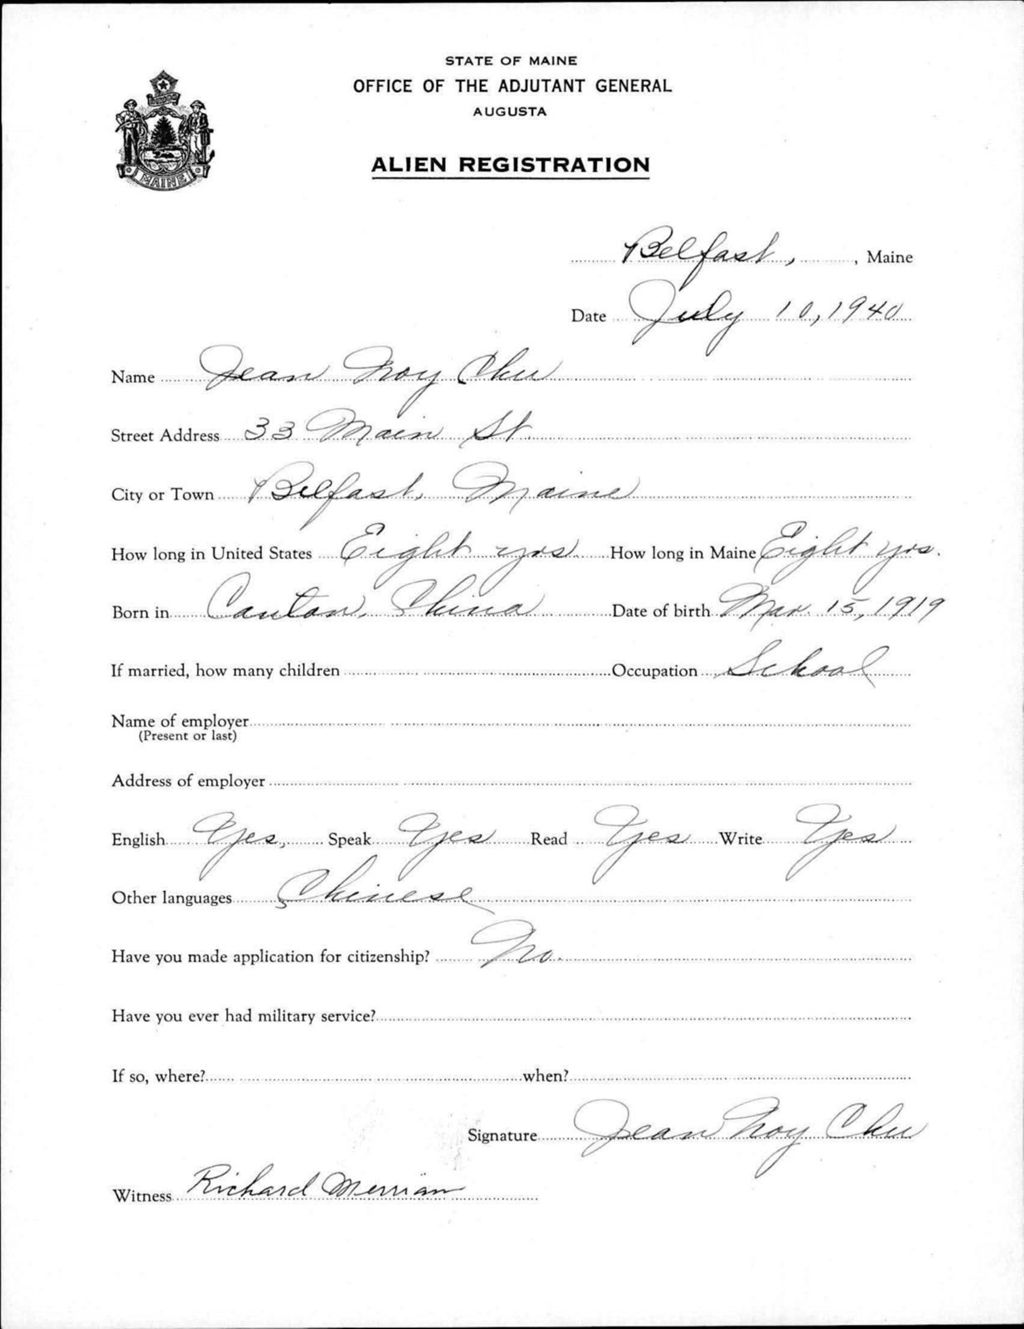 STATE OF MAINE
OFFICE OF THE ADJUTANT GENERAL
AUGUSTA
MAINE
ALIEN REGISTRATION
Belfast, , Maine
Date July 10, 1940
Name Jean Noy Chu
Street Address 33 Main St.
City or Town Belfast, Maine
How long in United States Eight yrs. How long in Maine Eight yrs.
Born in Canton, China Date of birth Mar. 15, 1919
If married, how many children Occupation School
Name of employer
(Present or last)
Address of employer
English Yes, Speak Yes Read Yes Write Yes
Other languages Chinese
Have you made application for citizenship? No.
Have you ever had military service?
If so, where? when?
Signature Jean Noy Chu
Witness Richard Merriam